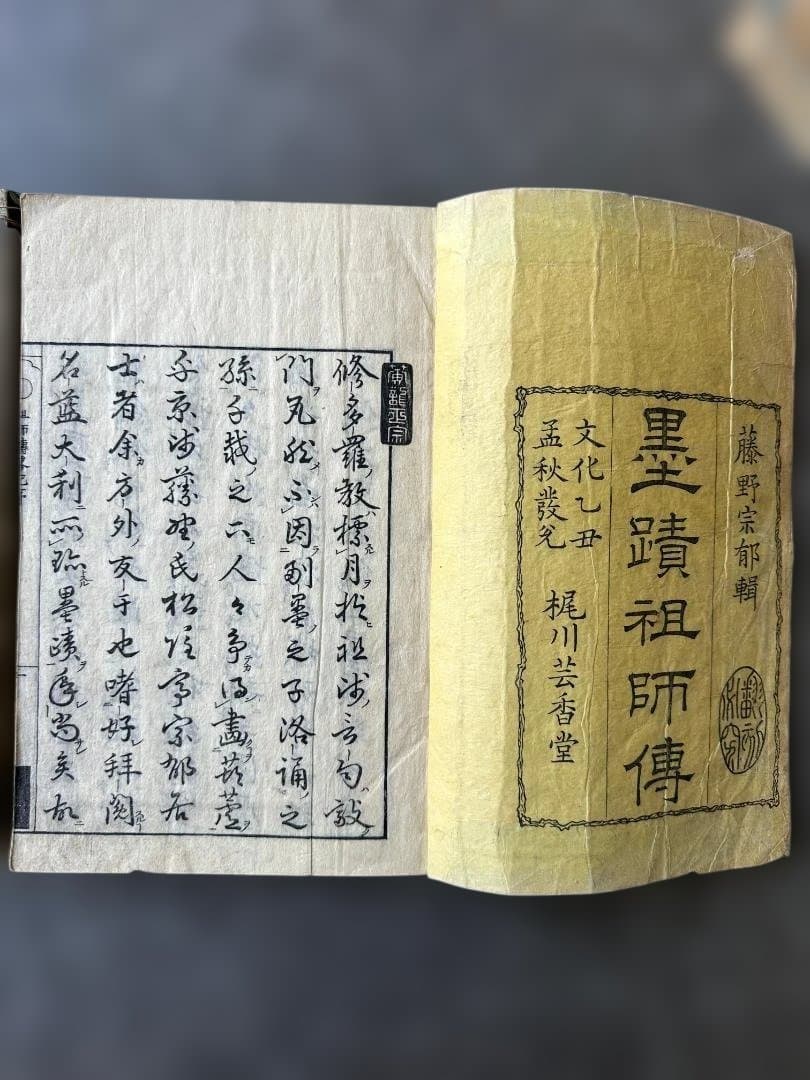 藤野宗郁輯
墨蹟祖師傳
文化乙丑
孟秋發兌
梶川芸香堂
修多羅教標月指祖師言句敲
門瓦然不因副墨之子洛誦之
孫千載之下人々争得畫葫蘆
乎京師藤野氏松隱亭宗郁居
士者余方外友于也嗜好拜閱
名藍大刹所珍墨蹟年尚矣故